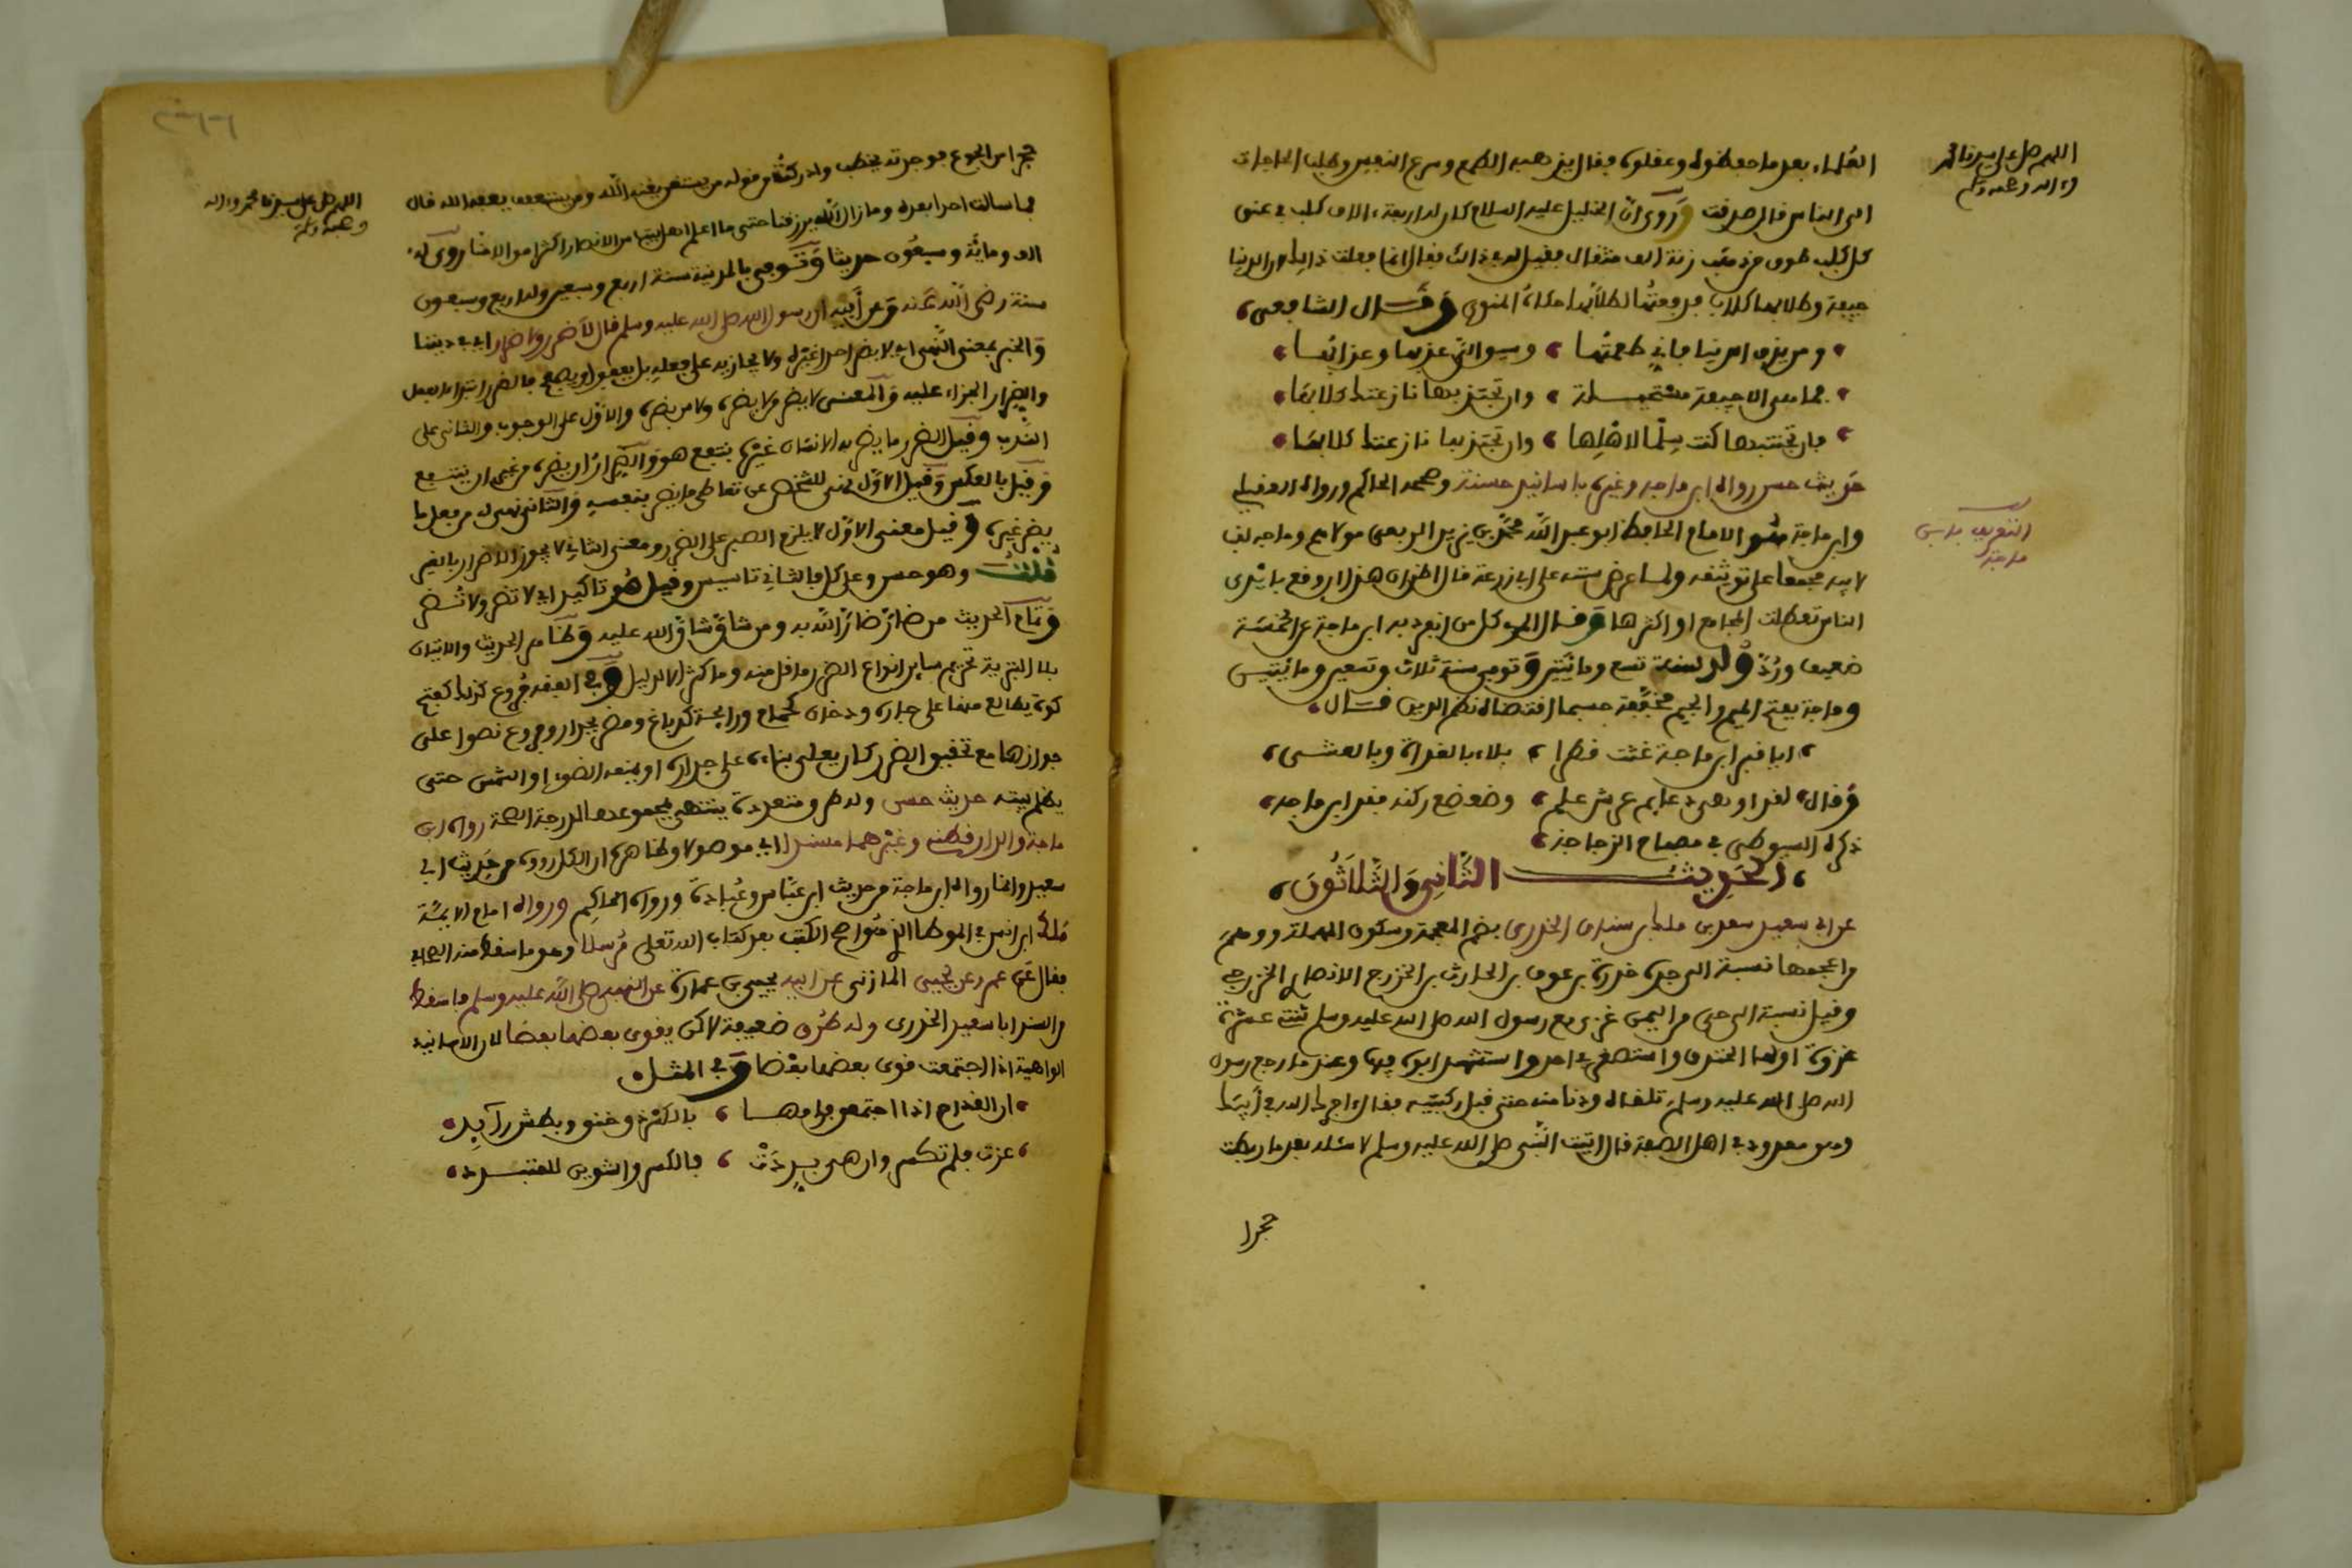 اللهم صل على سيدنا محمد
وءاله وصحبه وسلم
العلماء بعد ما حفظوه وعقلوه فقال يذهبه الطمع وشره النفس وطلب الحاجات
الى الناس قال صدقت وروي ان الخليل عليه السلام كان له اربعة ءالاف كلب في عنق
كل كلب طوق من ذهب زنة الف مثقال فقيل له في ذلك فقال انما فعلت ذلك لان الدنيا
جيفة وطلابها كلاب فدفعتها لطلابها حكاه المنوي وقال الشافعي
ومن يذق الدنيا فاني طعمتها وسيق الي عذبها وعذابها
فما هي الا جيفة مستحيلة وان تجتذبها نازعتك كلابها
فان تجتنبها كنت سلما لاهلها وان تجتذبها نازعتك كلابها
حديث حسن رواه ابن ماجه وغيره باسانيد حسنة وصححه الحاكم ورواه العقيلي
التعريف بابن
ماجة
وابن ماجة هو الامام الحافظ ابو عبد الله محمد بن يزيد الربعي مولاهم وماجه لقب
لابيه مجمعا على توثيقه ولما عرض سننه على ابي زرعة قال اظن ان هذا ان وقع بايدي
الناس تعطلت الجوامع او اكثرها وقال المزي كل من انفرد به ابن ماجة عن الخمسة
ضعيف ورد ولد سنة تسع ومائتين وتوفي سنة ثلاث وتسعين ومائتين
وماجة بفتح الميم والجيم مخففة حسبما اقتضاه نظم الدين قال
ايا قبر ابن ماجة غثت قطرا بلاء بالغداة وبالعشي
وقال لقد اوهى دعايم عرش علم وضعضع ركنه فقد ابن ماجه
ذكره السيوطي في مصباح الزجاجة
الحديث الثاني والثلاثون
عن ابي سعيد سعد بن ملك بن سنان الخدري بضم المعجمة وسكون المهملة ووهم
من اعجمها نسبة الى جده خدرة بن عوف بن الحارث بن الخزرج الانصاري الخزرجي
وقيل نسبة الى حي من اليمن غزى مع رسول الله صل الله عليه وسلم ثنتي عشرة
غزوة اولها الخندق واستصغر في احد واستشهد ابوه فيها وعند ما رجع رسول
الله صل الله عليه وسلم تلقاه ودنا منه حتى قبل ركبتيه فقال اجرك الله في ابيك
وهو معدود في اهل الصفة قال اتيت النبي صل الله عليه وسلم لاسئله بعد ما ربطت
حجرا
اللهم صل على سيدنا محمد وءاله
وصحبه وسلم
حجرا من الجوع فوجدته يخطب وادركت من قوله من يستغن يغنه الله ومن يستعفف يعفه الله قال
فما سالت احدا بعده وما زال الله يرزقنا حتى ما اعلم اهل بيت من الانصار اكثر اموالا منا روي له
الف ومائة وسبعون حديثا وتوفي بالمدينة سنة اربع وسبعين وله اربع وسبعون
سنة رضي الله عنه وعن ابيه ان رسول الله صل الله عليه وسلم قال لا ضرر ولا ضرار اي في ديننا
والخبر بمعنى النهي اي لا يضر احد غيره ولا يجازيه على فعله بل يعفو او يصفح فالضرر ابتداء الفعل
والضرار الجزاء عليه والمعنى لا يضر من لا يضره ولا من يضره والاول على الوجوب والثاني على
الندب وقيل الضرر ما يضر به الانسان غيره بنفع هو والضرار ان يضره من غير ان ينتفع
وقيل بالعكس وقيل الاول نهي للشخص عن تعاطي ما يضر بنفسه والثاني نهي له من فعل ما
يضر غيره وقيل معنى الاول لا يلزم الصبر على الضرر ومعنى الثاني لا يجوز الاضرار بالغير
قلت وهو حسن وعلى كل فالثاني تاسيس وقيل هو تاكيد اي لا تضر ولا تضر
وتمام الحديث من ضار ضار الله به ومن شاق شاق الله عليه وظاهر الحديث والاتيان
بلا التبرية تحريم ساير انواع الضرر ما قل منه وما كثر الا لدليل وفي الفقه فروع كذلك كفتح
كوة يطالع منها على جاره ودخان كحمام ورائحة كدباغ ومضر بجدار وفروع نصوا على
جوازها مع تحقيق الضرر كان يعلي بناءه على جداره او يمنعه الضوء او الشمس حتى
يظلم بيته حديث حسن وله طرق متعددة ينتهي مجموعها الى درجة الصحة رواه ابن
ماجة والدار قطني وغيرهما مسندا اي موصولا وظاهره ان الكل رووه من حديث ابي
سعيد وانما رواه ابن ماجة من حديث ابن عباس وعبادة ورواه الحاكم ورواه امام الايمة
ملك ابن انس في الموطا الذي هو اصح الكتب بعد كتاب الله تعلى مرسلا وهو ما سقط منه الصحابي
فقال عن عمرو عن يحيى المازني عن ابيه يحيى بن عمارة عن النبي صل الله عليه وسلم فاسقط
من السند ابا سعيد الخدري وله طرق ضعيفة لاكن يقوى بعضها بعضا لان الاسانيد
الواهية اذا اجتمعت قوى بعضها بعضا وفي المثل
ان القداح اذا اجتمعن فرامها بالكسر ذو حنق وبطش ايد
عزت فلم تكسر وان هي بددت فالكسر والتوهين للمتبدد